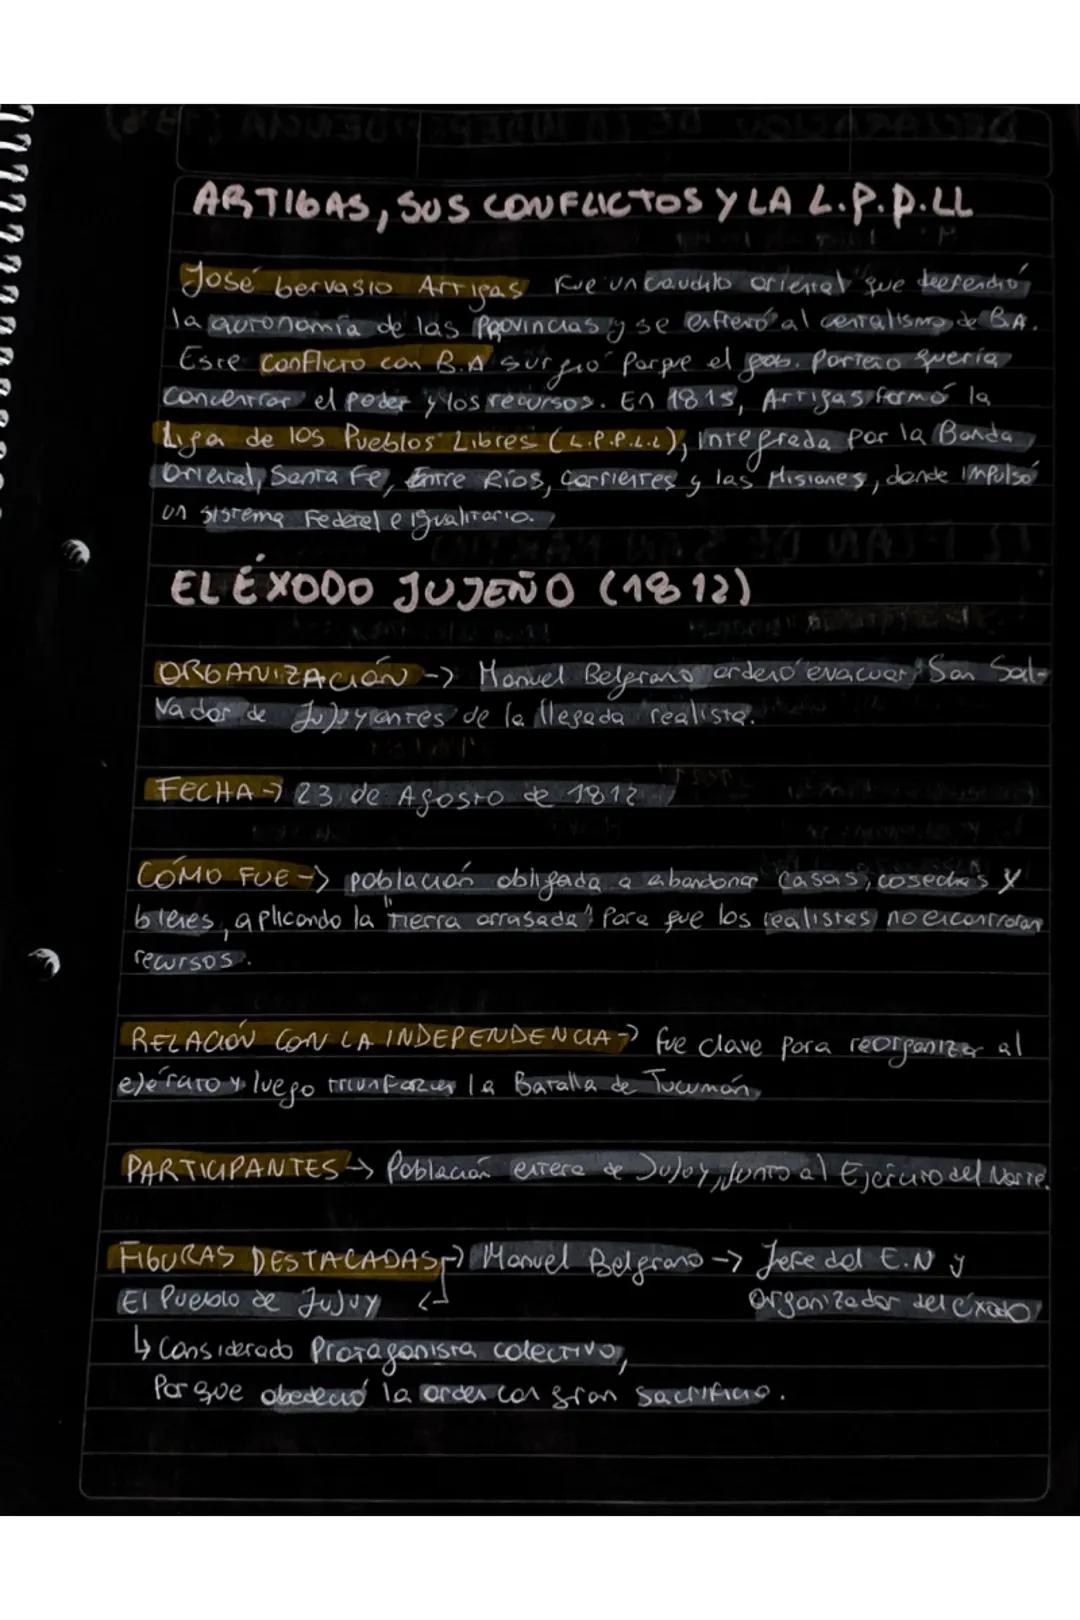 ARTIGAS, SUS CONFLICTOS Y LA L.P.P.LL
José Gervasio Artigas fue un caudillo oriental que defendió
la autonomía de las Provincias y se enfrentó al centralismo de B.A.
Este conflicto con B.A surgió porque el gob. Porteño quería
concentrar el poder y los recursos. En 1815, Artigas formó la
Liga de los Pueblos Libres (L.P.P.L.L), integrada por la Banda
Oriental, Santa Fe, Entre Ríos, Corrientes y las Misiones, donde impulsó
un sistema Federal e igualitario.
EL ÉXODO JUJEÑO (1812)
ORGANIZACIÓN -> Manuel Belgrano ordenó evacuar San Sal-
vador de Jujuy antes de la llegada realista.
FECHA -> 23 de Agosto de 1812
CÓMO FUE -> población obligada a abandonar casas, cosechas y
bienes, aplicando la "Tierra arrasada" Para que los realistas no encontraran
recursos.
RELACIÓN CON LA INDEPENDENCIA -> fue clave para reorganizar al
ejército y luego triunfar en la Batalla de Tucumán
PARTICIPANTES -> Población entera de Jujuy, junto al Ejército del Norte.
FIGURAS DESTACADAS -> Manuel Belgrano -> Jefe del E.N y
El Pueblo de Jujuy <- organizador del éxodo
↳ Considerado Protagonista colectivo,
Porque obedeció la orden con gran sacrificio.